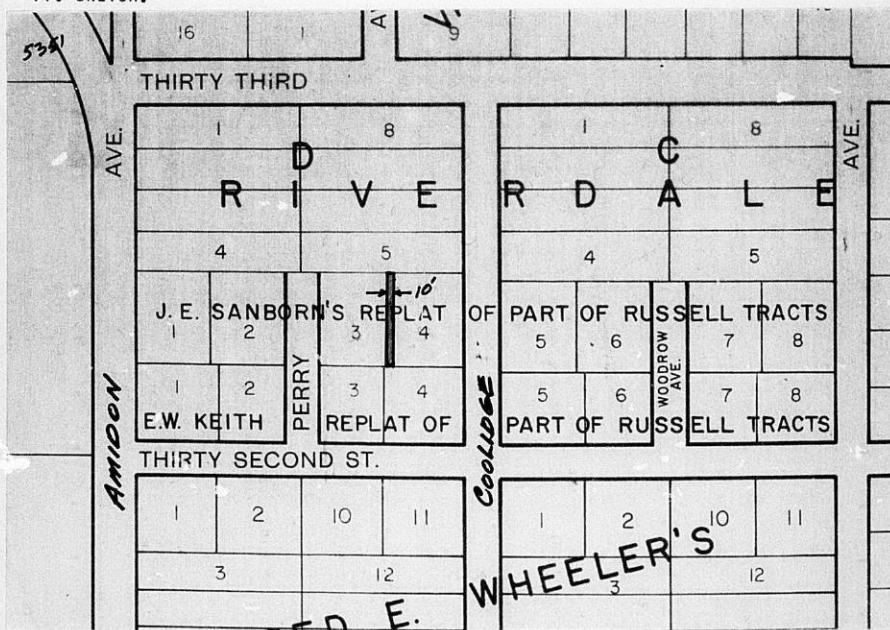 5351
16
9
THIRTY THIRD
AVE.
1 8 1 8
AVE.
D C
R I V E R D A L E
4 5 4 5
10'
J. E. SANBORN'S REPLAT OF PART OF RUSSELL TRACTS
1 2 3 4 5 6 7 8
PERRY
WOODROW AVE.
1 2 3 4 5 6 7 8
E.W. KEITH REPLAT OF PART OF RUSSELL TRACTS
AMIDON
COOLIDGE
THIRTY SECOND ST.
1 2 10 11 1 2 10 11
3 12 3 12
E. WHEELER'S